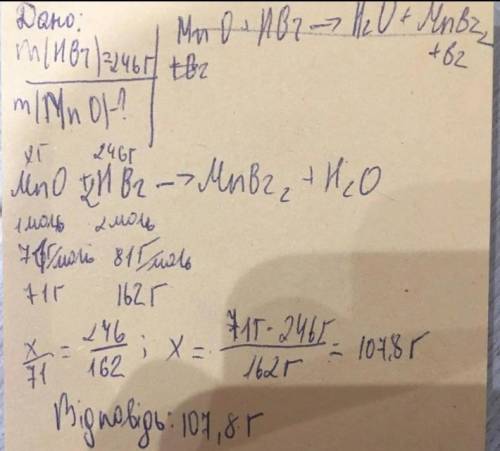 Дано:
MnO + HBr → H₂O + MnBr₂
m(HBr)=246г
+Br₂
m(MnO)-?
xг 246г
MnO + 2HBr → MnBr₂ + H₂O
1моль 2моль
71г/моль 81г/моль
71г 162г
x/71 = 246/162 ; x = 71г · 246г/162г = 107,8 г
Відповідь: 107,8 г